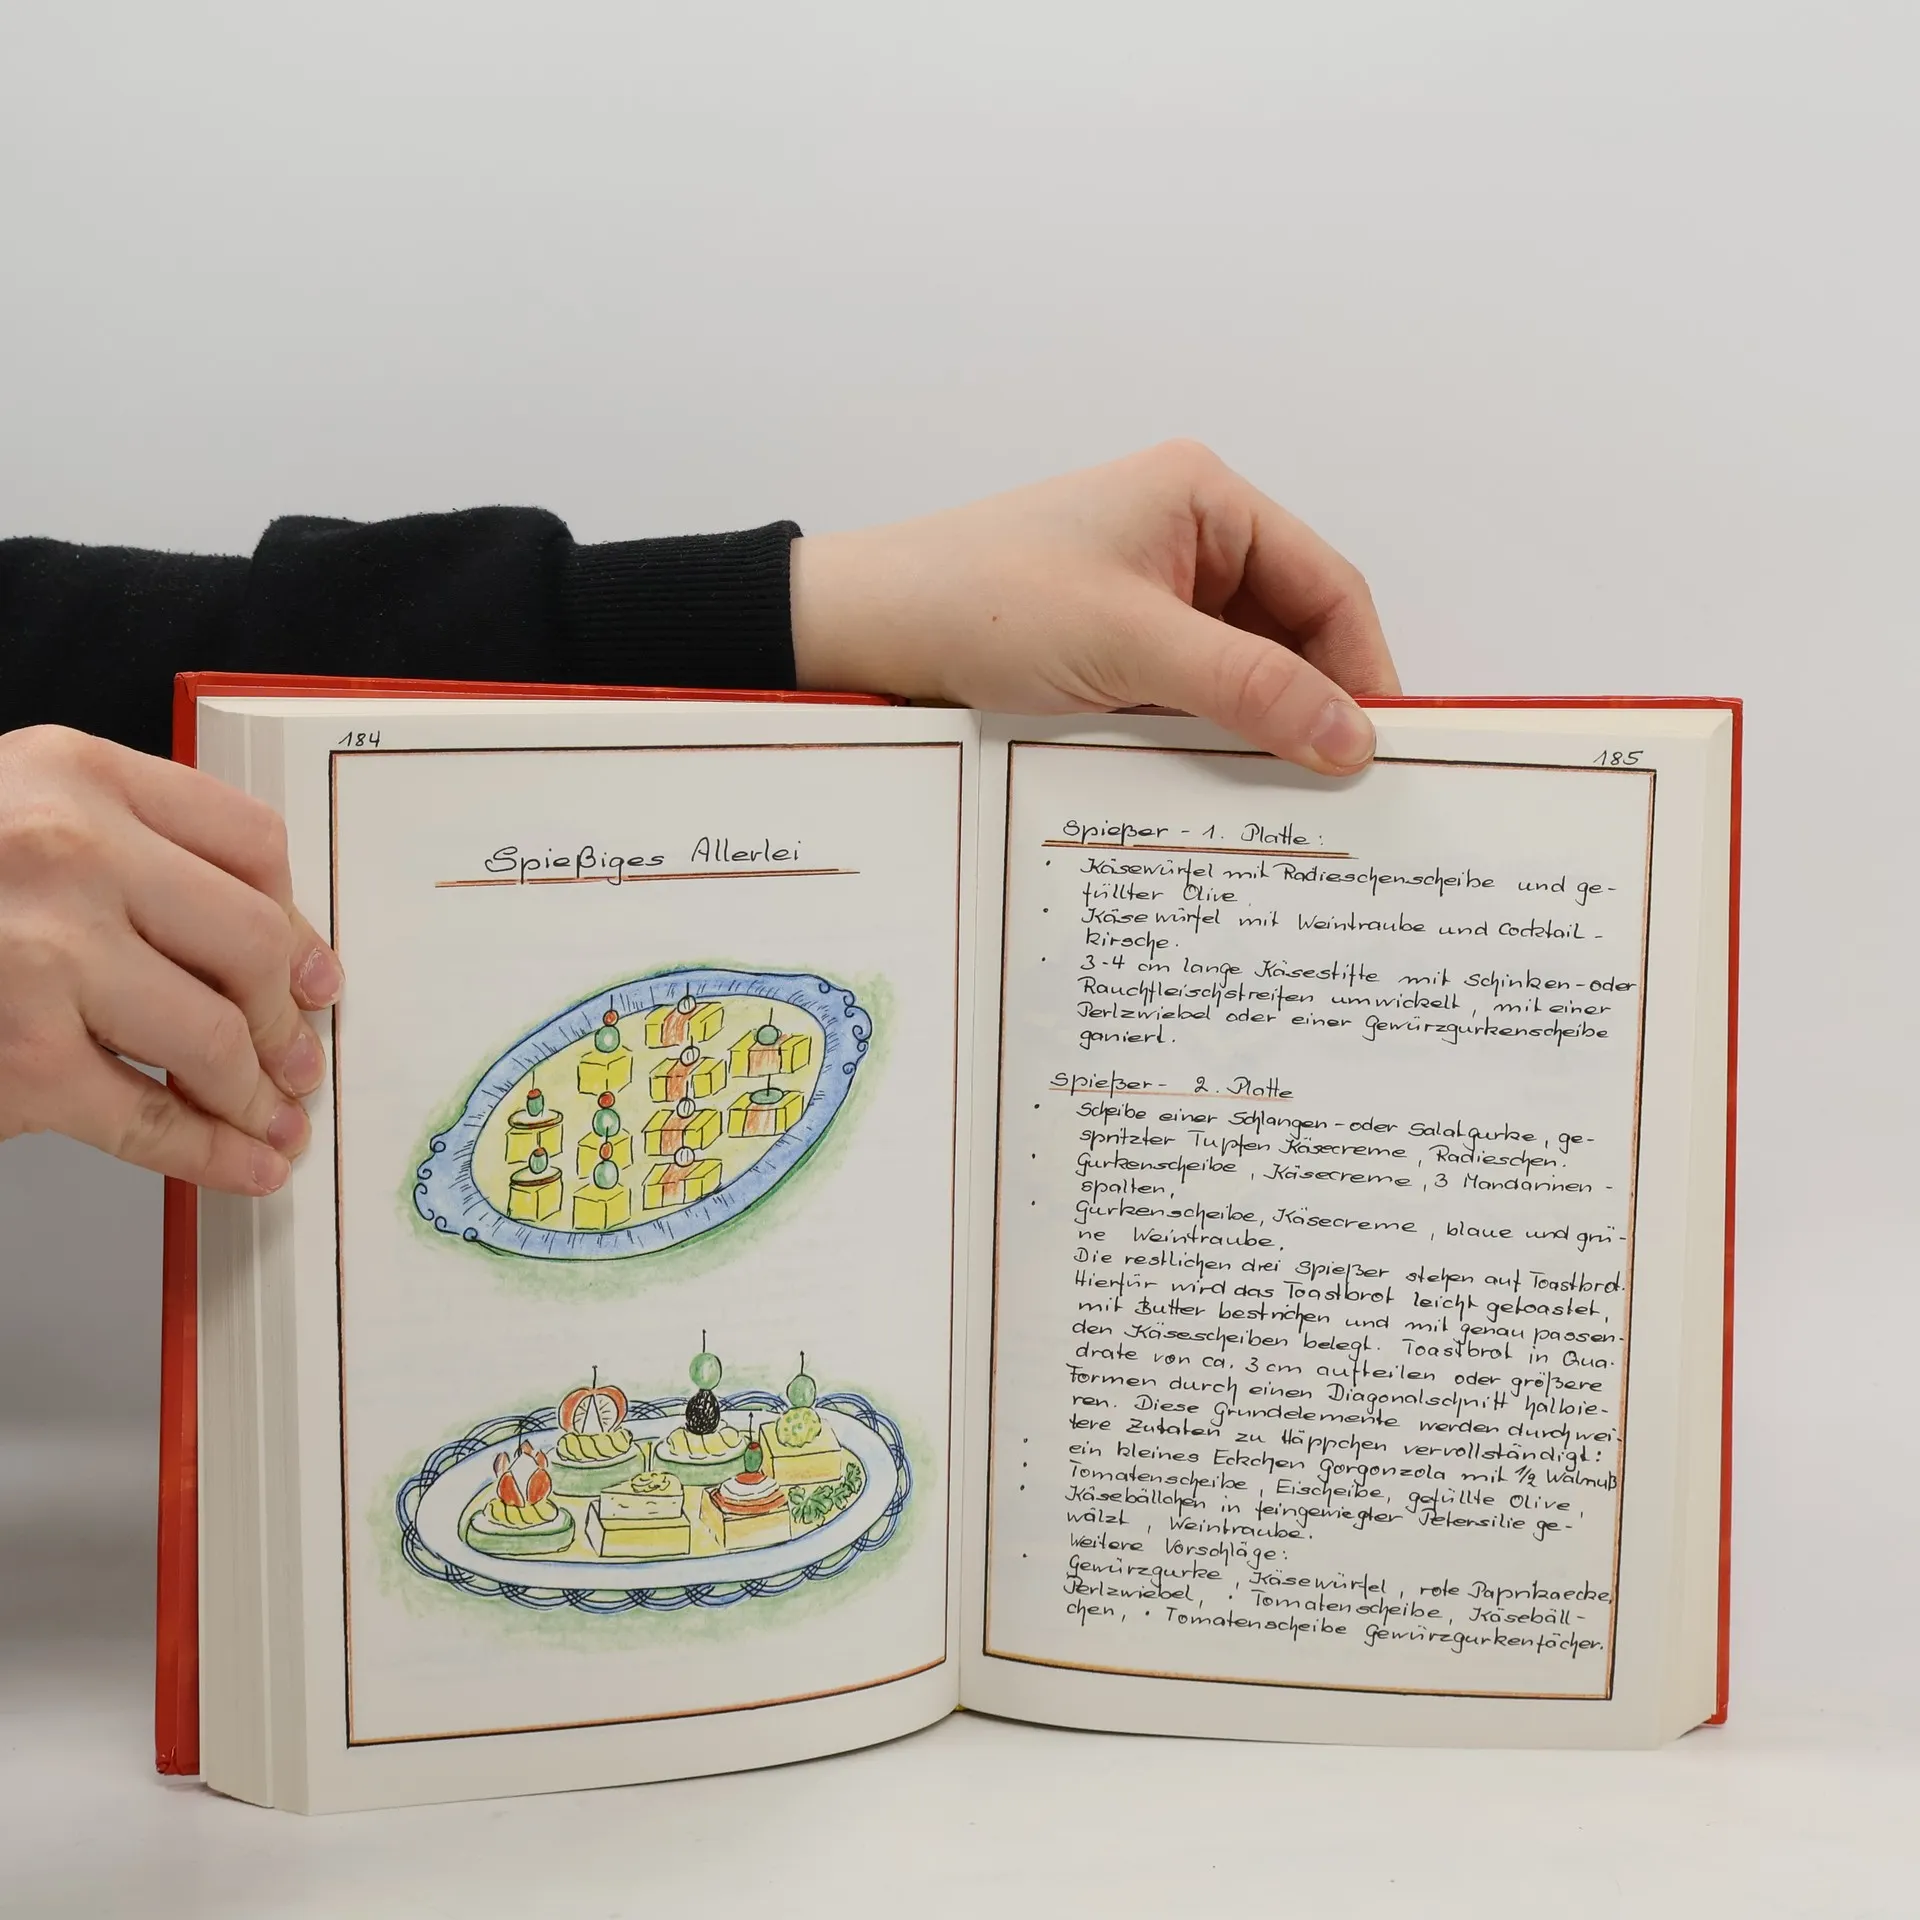 184
Spießiges Allerlei
185
Spießer - 1. Platte:
• Käsewürfel mit Radieschenscheibe und ge-
füllter Olive.
• Käsewürfel mit Weintraube und Cocktail-
kirsche.
• 3-4 cm lange Käsestifte mit Schinken-oder
Rauchfleischstreifen umwickelt, mit einer
Perlzwiebel oder einer Gewürzgurkenscheibe
ganiert.
Spießer - 2. Platte
• Scheibe einer Schlangen-oder Salatgurke, ge-
spritzter Tupfen Käsecreme, Radieschen.
• Gurkenscheibe, Käsecreme, 3 Mandarinen-
spalten,
• Gurkenscheibe, Käsecreme, blaue und grü-
ne Weintraube.
Die restlichen drei Spießer stehen auf Toastbrot.
Hierfür wird das Toastbrot leicht getoastet,
mit Butter bestrichen und mit genau passen-
den Käsescheiben belegt. Toastbrot in Qua-
drate von ca. 3 cm aufteilen oder größere
Formen durch einen Diagonalschnitt halbie-
ren. Diese Grundelemente werden durch wei-
tere Zutaten zu Häppchen vervollständigt:
• ein kleines Eckchen Gorgonzola mit 1/2 Walnuß
• Tomatenscheibe, Eischeibe, gefüllte Olive,
• Käsebällchen in feingewiegter Petersilie ge-
wälzt, Weintraube.
Weitere Vorschläge:
• Gewürzgurke, Käsewürfel, rote Paprikaecke,
Perlzwiebel, • Tomatenscheibe, Käsebäll-
chen, • Tomatenscheibe Gewürzgurkenfächer.